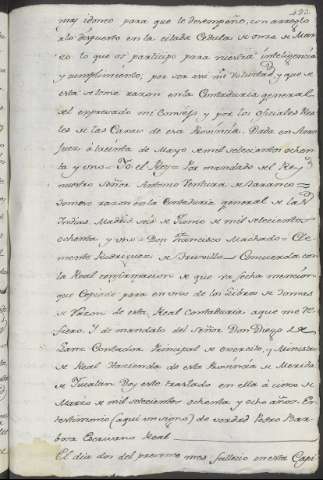 mas idoneo para que le desempeñe, con arreglo
a lo dispuesto en la citada Cedula de onze de Mar-
zo lo que os participo para vuestra inteligencia
y cumplimiento, por ser assi mi voluntad, y que de
esta se tome razon en la Contaduria general
del expresado mi Consejo, y por los oficiales Rea-
les de las Caxas de esa Provincia. Dada en Aran-
juez à treinta de Mayo de mil setecientos ochen-
ta y uno = Yo el Rey = Por mandado del Rey
nuestro Señor Antonio Ventura de Taranco =
Tomose razon en la Contaduria general de las
Indias. Madrid seis de Junio de mil setecientos
ochenta y uno = Don Francisco Machado = Cle-
mente Rodriguez de = Concuerda con
la Real confirmacion de que va fecha mencion
que Copiada para en uno de los Libros de tomas
de razon de esta Real Contaduria aque me re-
fiero. Y de mandato del Señor Don Diego de
Lanz Contador Principal de exercito, y Ministro
de Real Hacienda de esta Provincia de Merida
de Yucatán Doy este traslado en ella à cinco de
Marzo de mil setecientos ochenta y ocho años. En
testimonio (aqui un signo) de verdad Pedro Bar-
bosa Escrivano Real
El dia dos del presente mes fallecio en esta Capi